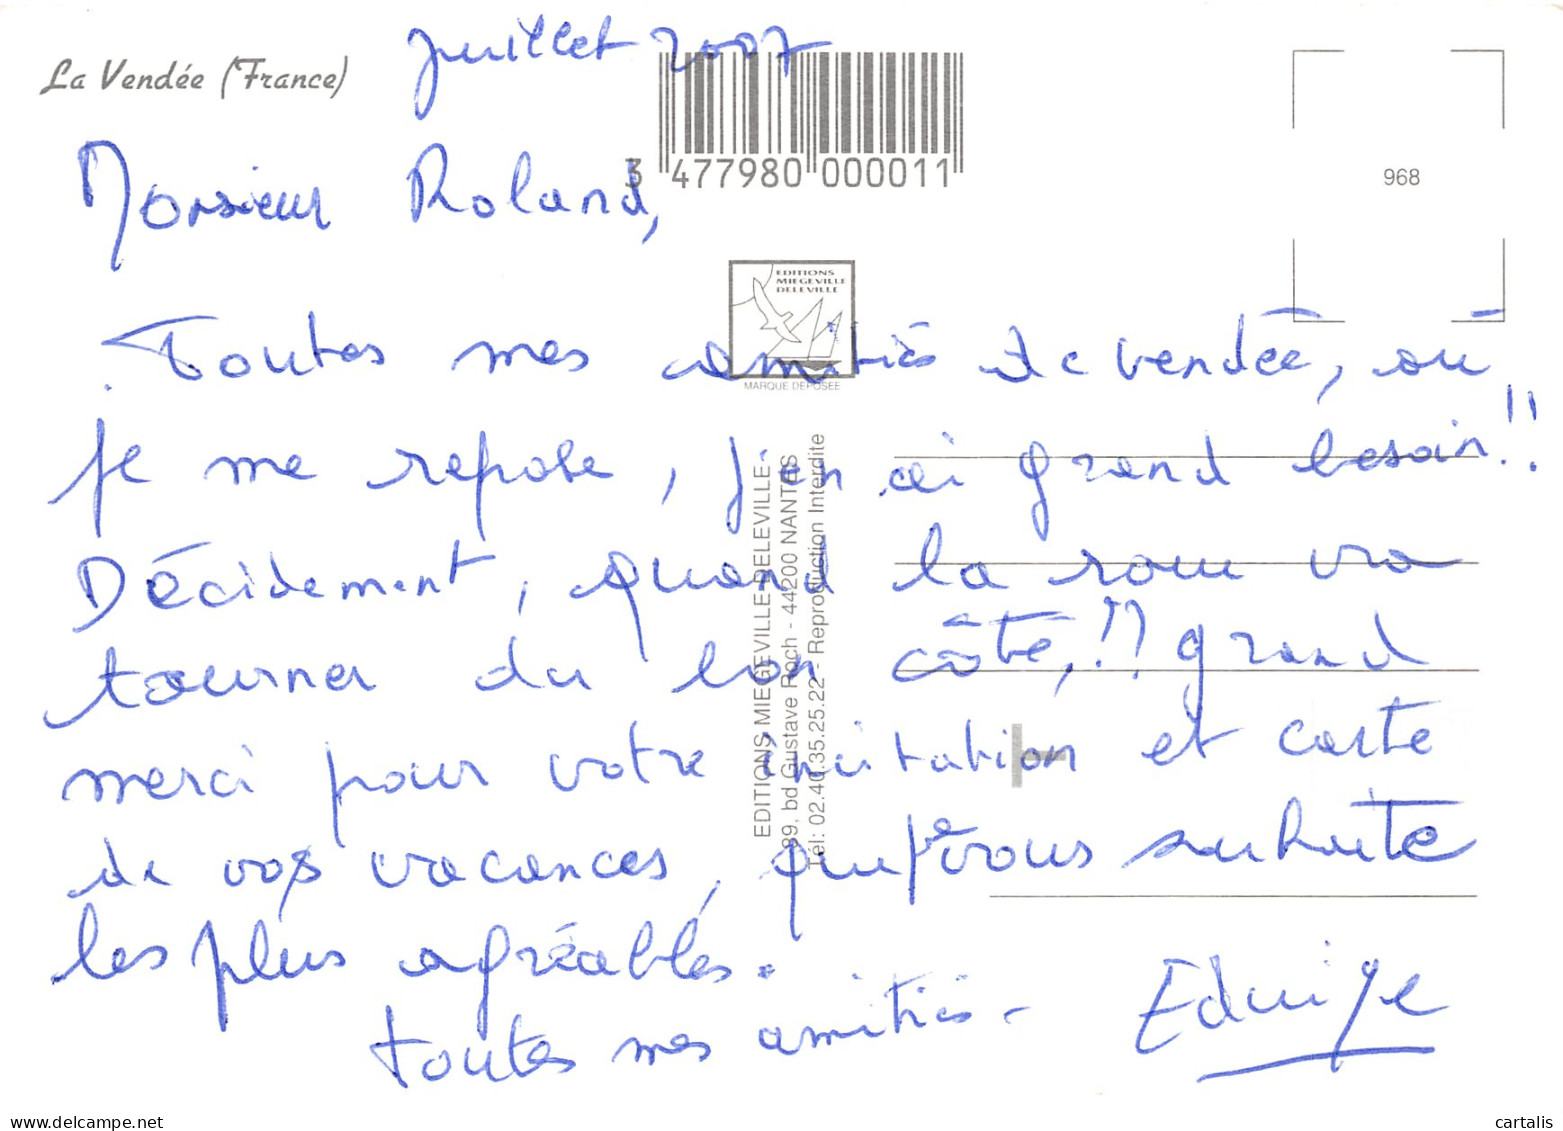 La Vendée (France)
juillet 2007
3 477980 000011
968
Monsieur Roland,
EDITIONS
MIEGEVILLE
DELEVILLE
MARQUE DEPOSEE
Toutes mes amitiés de Vendée, où
je me repose, j'en ai grand besoin!!
Décidement, quand la roue va
tourner du bon côté,!! grand
merci pour votre invitation et carte
de vos vacances, que je vous souhaite
les plus agréables.
toutes mes amitiés -
Edwige
EDITIONS MIEGEVILLE-DELEVILLE
89, bd Gustave Roch - 44200 NANTES
Tél: 02.40.35.25.22 - Reproduction Interdite
cartalis